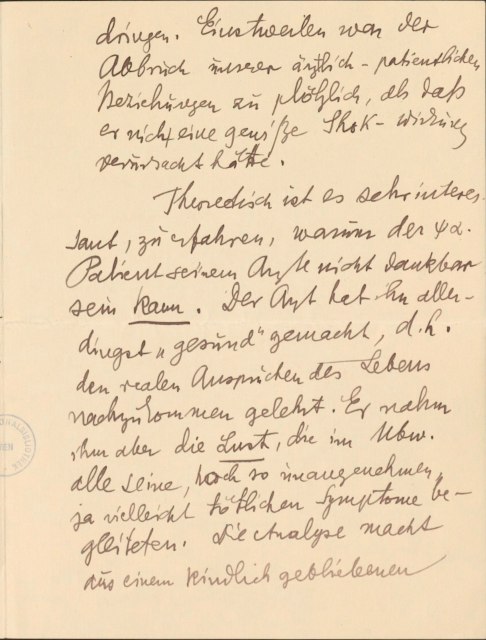 dringen. Einstweilen war der
Abbruch unserer ärztlich-patientlichen
Beziehungen zu plötzlich, als daß
er nicht eine gewiße Shok-wirkung
verursacht hätte.
Theoretisch ist es sehr interes-
sant, zu erfahren, warum der ψα.
Patient seinem Arzte nicht dankbar
sein kann. Der Arzt hat ihn aller-
dingst „gesund“ gemacht, d.h.
den realen Ansprüchen des Lebens
nachzukommen gelehrt. Er nahm
ihm aber die Lust, die im Ubw.
alle seine, noch so unangenehmen,
ja vielleicht tötlichen Symptome be-
gleiteten. Die Analyse macht
aus einem kindlich gebliebenen